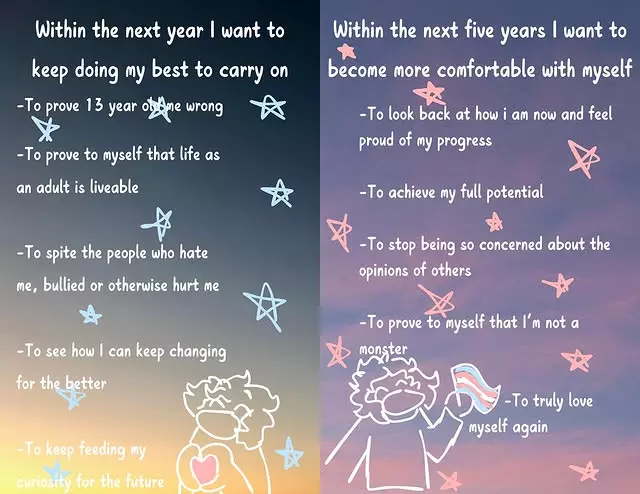 Within the next year I want to
keep doing my best to carry on
-To prove 13 year old me wrong
-To prove to myself that life as
an adult is liveable
-To spite the people who hate
me, bullied or otherwise hurt me
-To see how I can keep changing
for the better
-To keep feeding my
curiosity for the future
Within the next five years I want to
become more comfortable with myself
-To look back at how i am now and feel
proud of my progress
-To achieve my full potential
-To stop being so concerned about the
opinions of others
-To prove to myself that I'm not a
monster
-To truly love
myself again